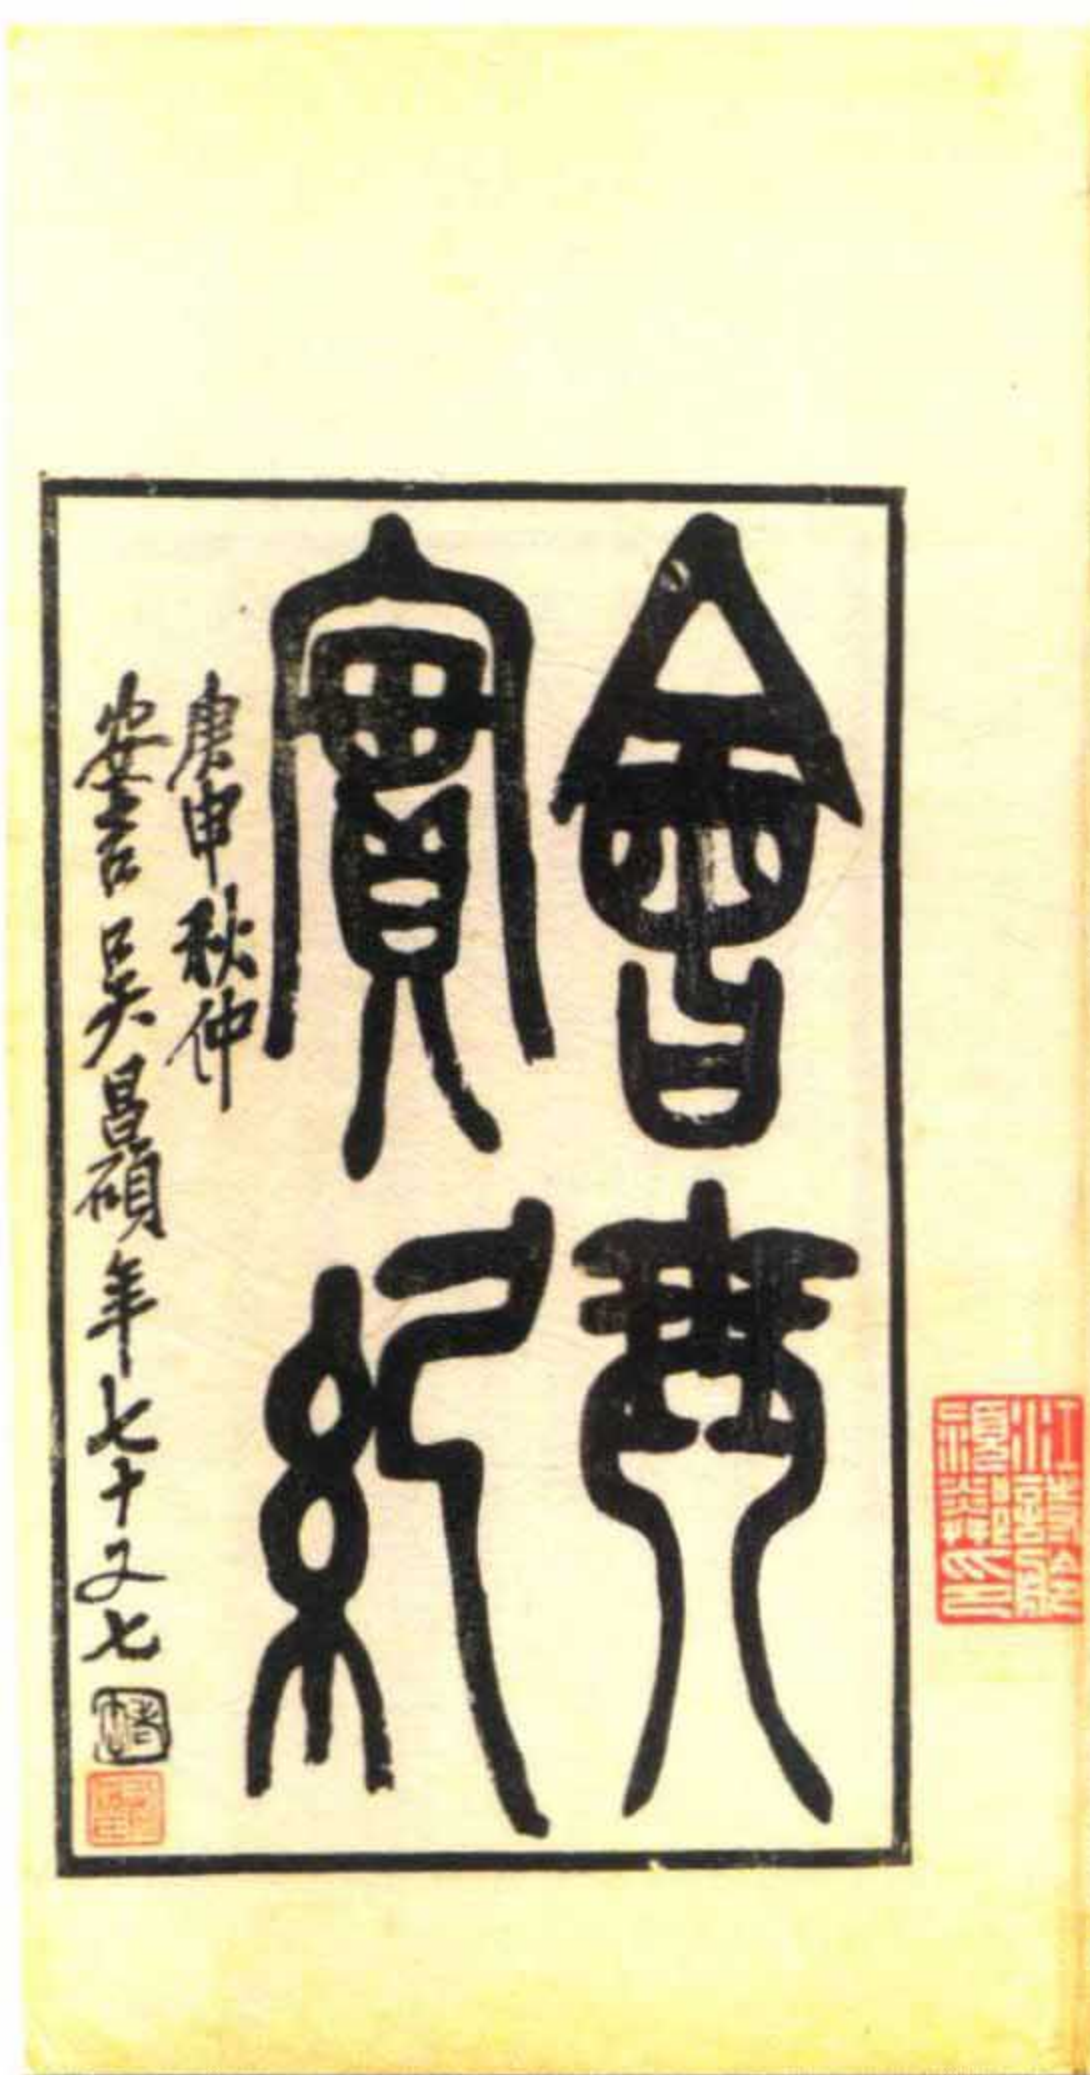 會琴
實紀
庚申秋仲
安吉吳昌碩年七十又七